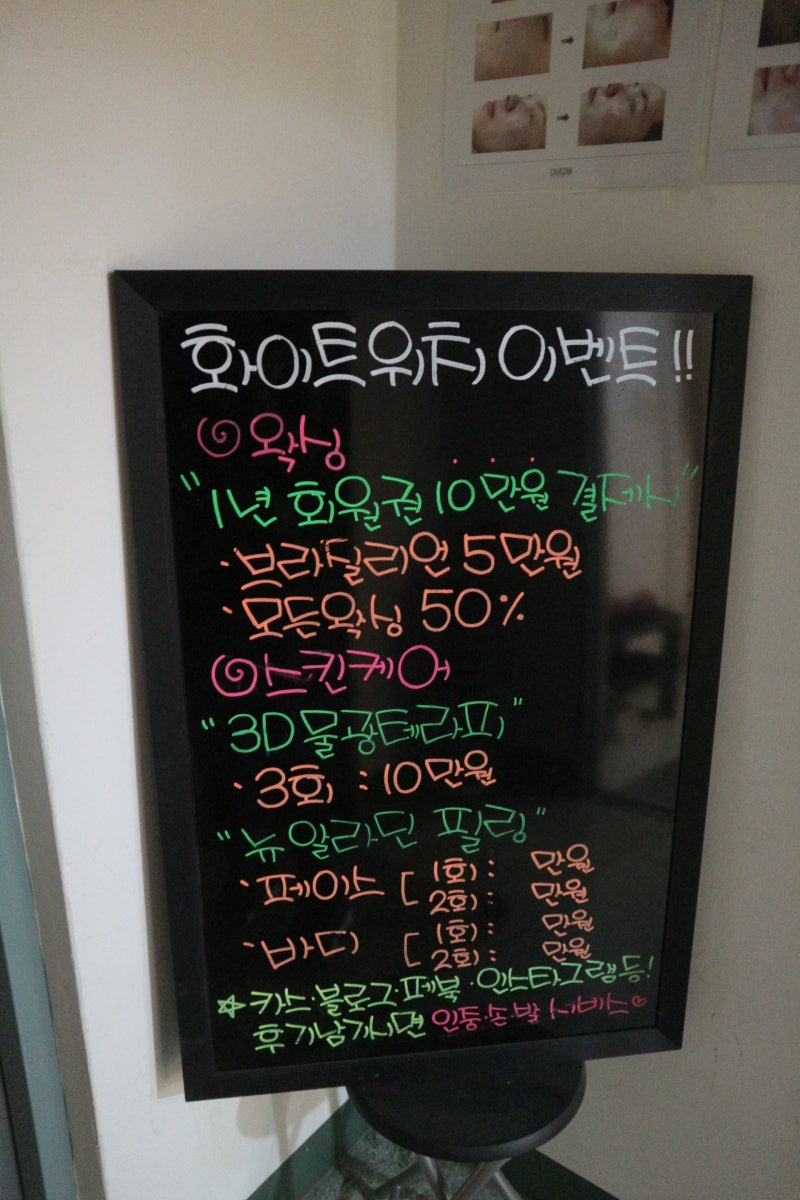 CIVASAN
화이트위치 이벤트!!
왁싱
"1년 회원권 10만원 결제시"
· 브라질리언 5만원
· 모든왁싱 50%
스킨케어
"3D물광테라피"
· 3회 : 10만원
"뉴알라딘 필링"
· 페이스 [ 1회 : 만원
2회 : 만원
· 바디 [ 1회 : 만원
2회 : 만원
☆ 카스·블로그·페북·인스타그램등!
후기남기시면 인중·손·발 서비스♡